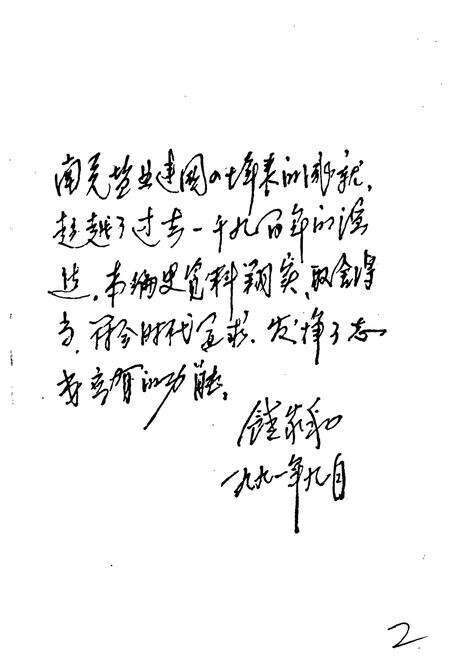 南充盐业建国四十年来的成就,
超越了过去一千九百年的演
进。本编史览料翔实、取舍得
当、符合时代要求、发挥了志
书应有的功能。
家和
一九九一年九月
2